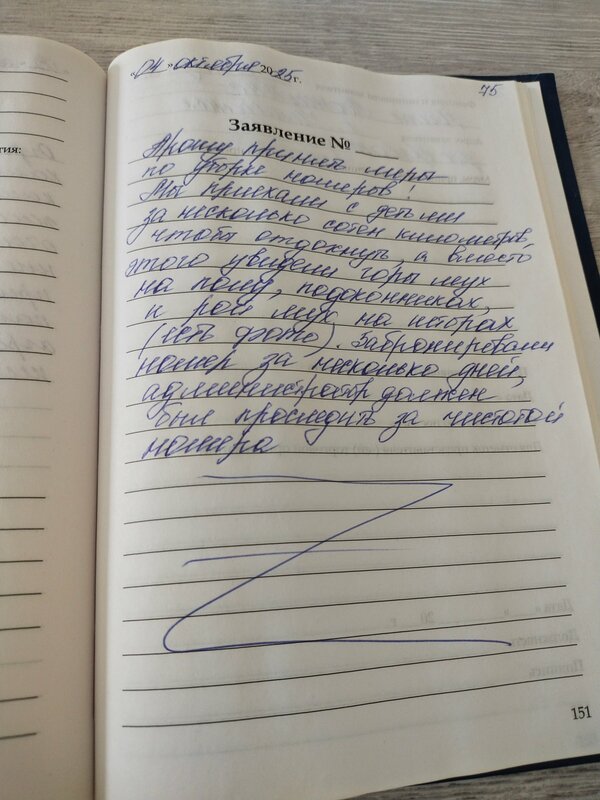 «04» октября 2025г.
75
Заявление №
Прошу принять меры
по уборке номеров!
Мы приехали с детьми
за несколько сотен километров,
чтобы отдохнуть, а вместо
этого увидели горы мух
на полу, подоконниках,
и рой мух на шторах
(есть фото). Забронировали
номер за несколько дней,
администратор должен
был проследить за чистотой
номера
тия:
151